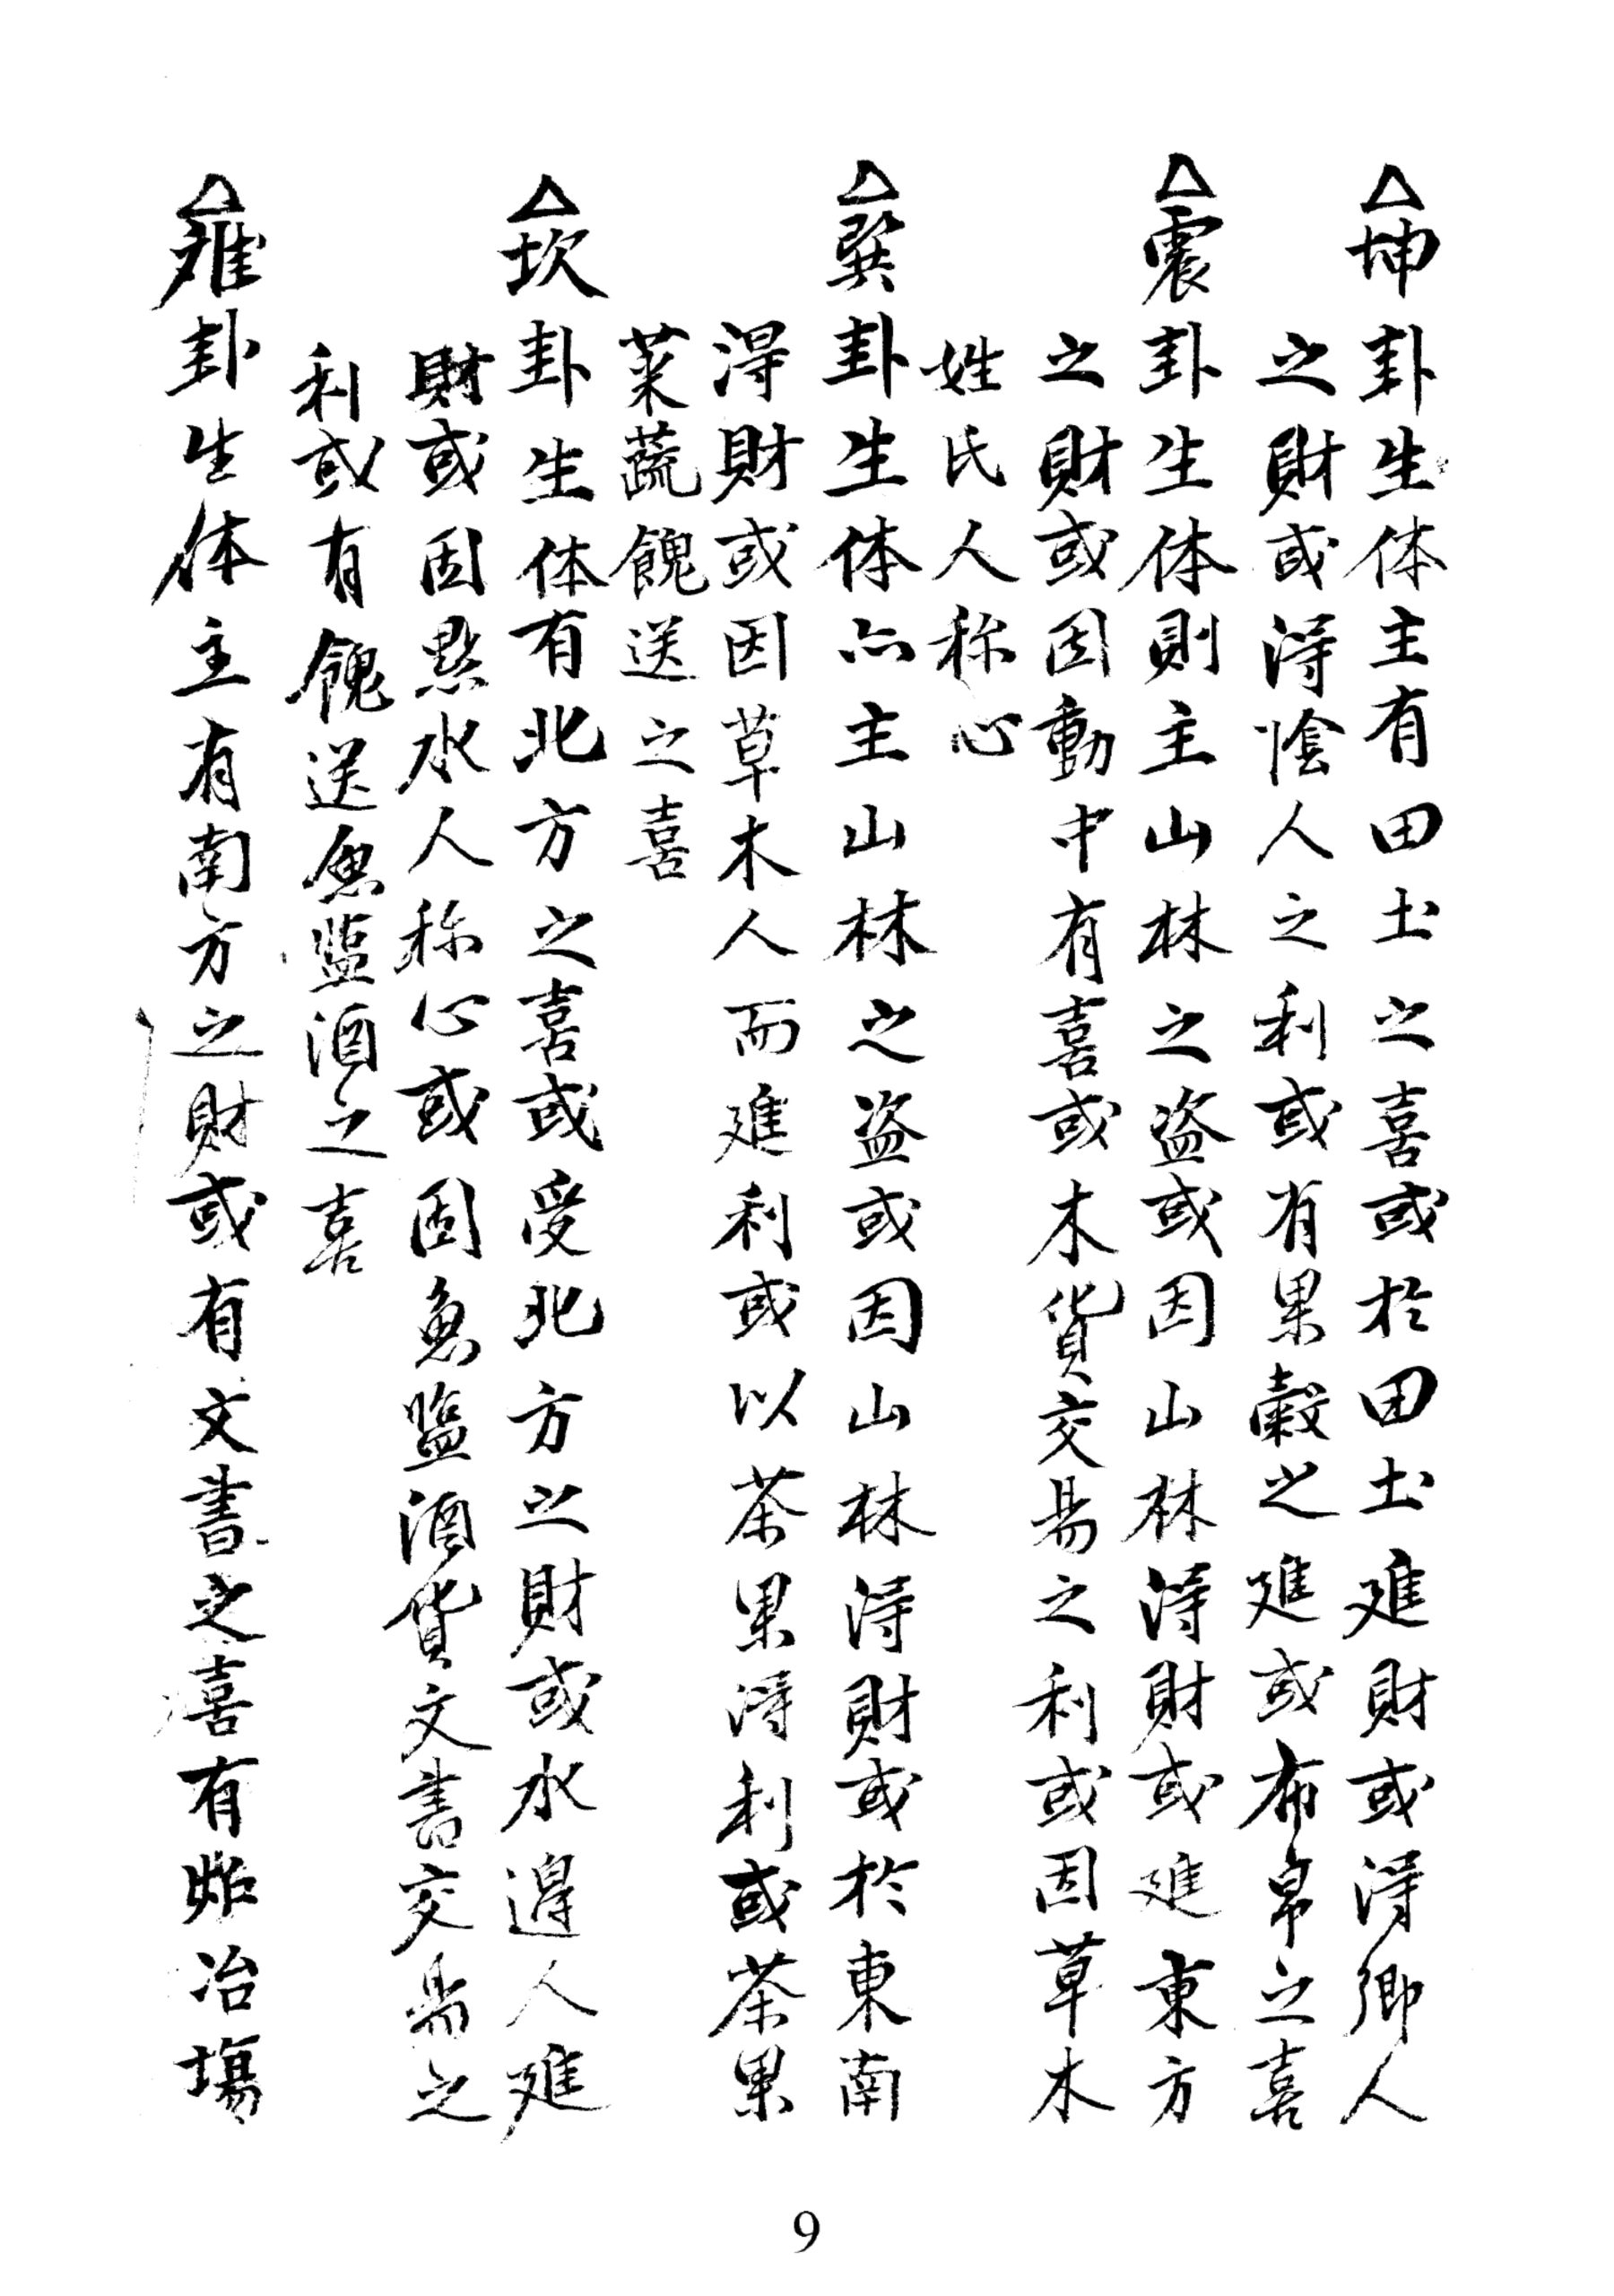 △坤卦生体主有田土之喜或於田土進財或得鄉人
之財或得陰人之利或有果穀之進或布帛之喜
△震卦生体則主山林之盗或因山林得財或進東方
之財或因動中有喜或木貨交易之利或因草木
姓氏人称心
△巽卦生体亦主山林之盗或因山林得財或於東南
得財或因草木人而進利或以茶果得利或茶果
菜蔬餽送之喜
△坎卦生体有北方之喜或受北方之財或水邊人進
財或因點水人称心或因魚盐酒貨文書交易之
利或有餽送魚盐酒之喜
△離卦生体主有南方之財或有文書之喜有炉冶場
9